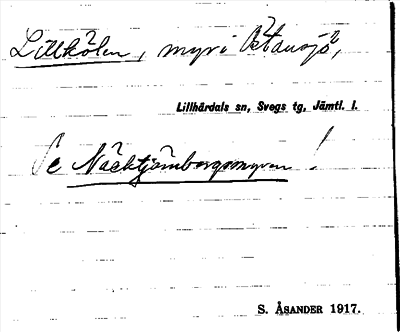 Lillkölen, myr i Östansjö,
Lillhärdals sn, Svegs tg, Jämtl. l.
Se Näcktjärnbergsmyren !
S. ÅSANDER 1917.